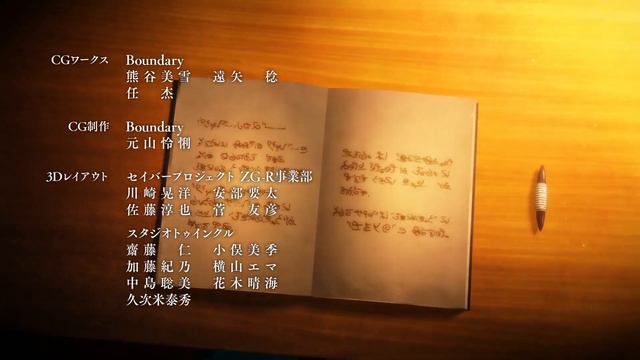 CGワークス Boundary
熊谷美雪 遠矢 稔
任 杰
CG制作 Boundary
元山怜悧
3Dレイアウト セイバープロジェクト ZG-R事業部
川崎晃洋 安部要太
佐藤淳也 菅 友彦
スタジオトゥインクル
齋藤 仁 小俣美季
加藤紀乃 横山エマ
中島聡美 花木晴海
久次米泰秀